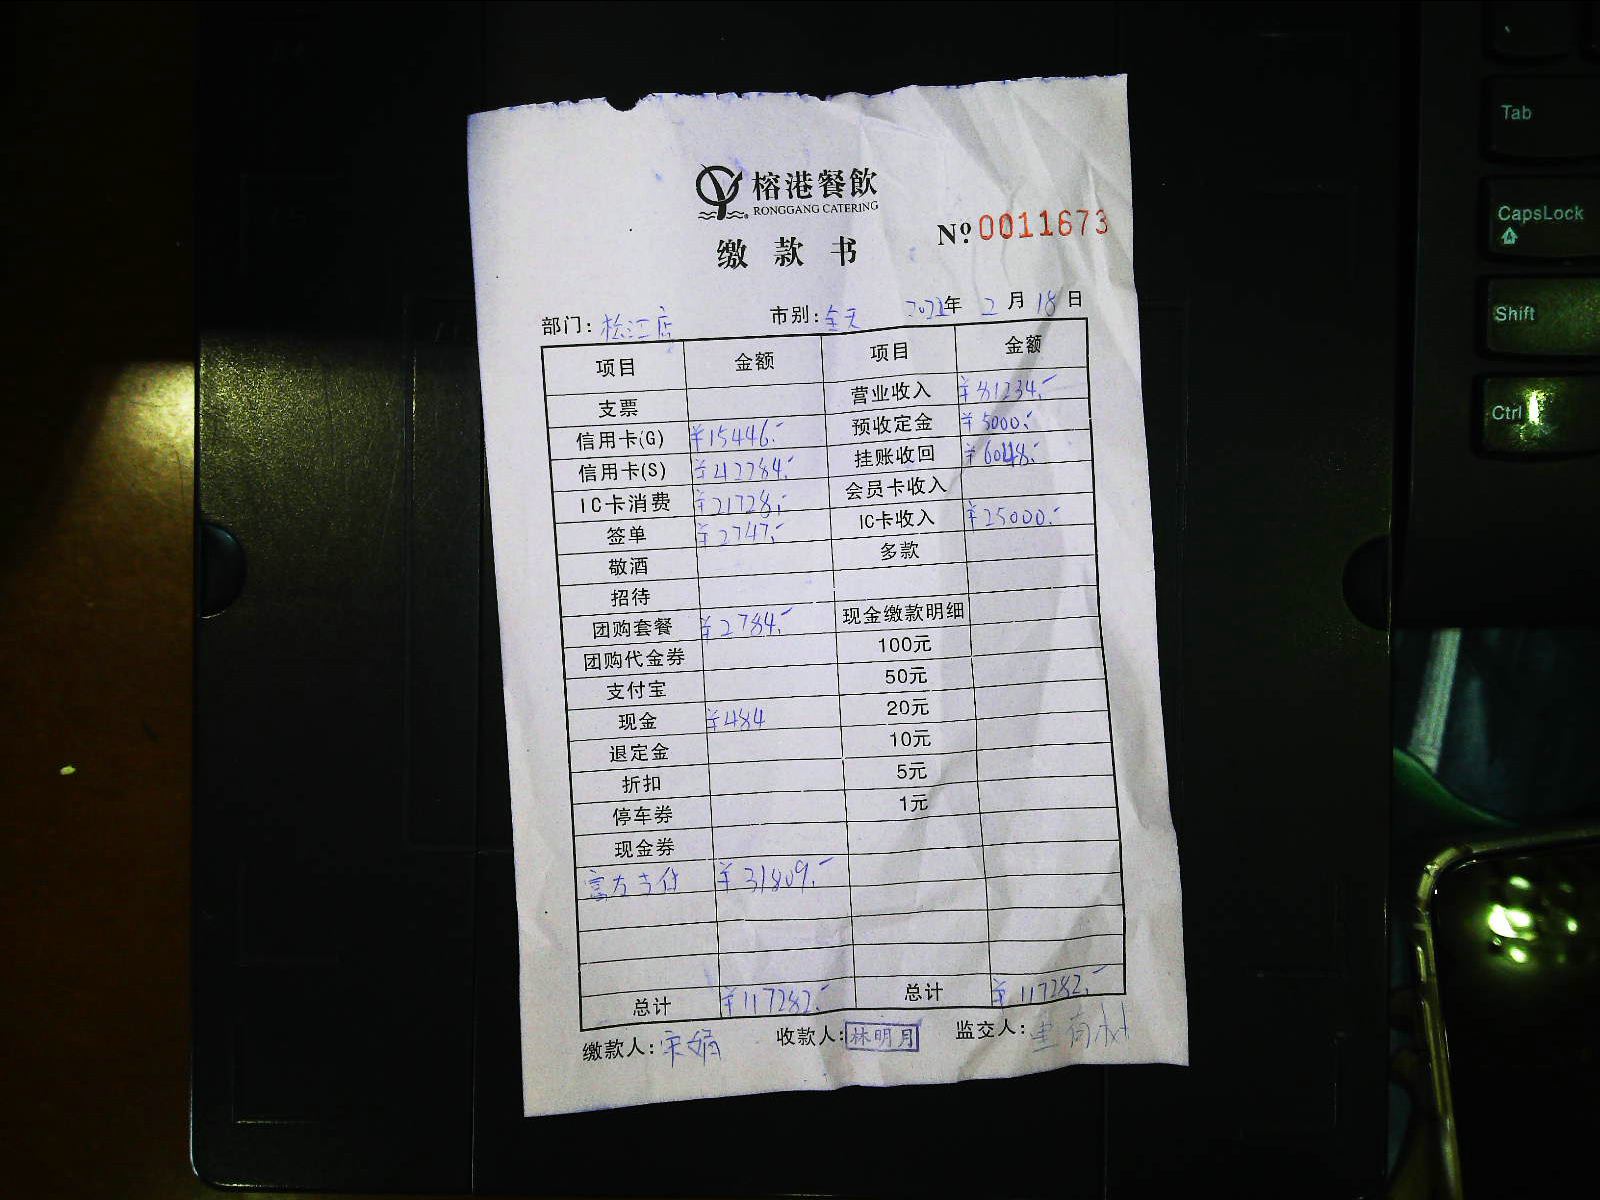 榕港餐飲
RONGGANG CATERING
缴款书
Nº 0011673
部门: 松江店 市别: 全天 2021年 2月 18日
项目 金额 项目 金额
支票 营业收入 ¥81234.-
信用卡(G) ¥15446.- 预收定金 ¥5000.-
信用卡(S) ¥42784.- 挂账收回 ¥6048.-
IC卡消费 ¥21728.- 会员卡收入
签单 ¥2747.- IC卡收入 ¥25000.-
敬酒 多款
招待
团购套餐 ¥2784.- 现金缴款明细
团购代金券 100元
支付宝 50元
现金 ¥484 20元
退定金 10元
折扣 5元
停车券 1元
现金券
官方支付 ¥31809.-
总计 ¥117282.- 总计 ¥117282.-
缴款人: 宋娟 收款人: 林明月 监交人:
Tab
CapsLock
Shift
Ctrl